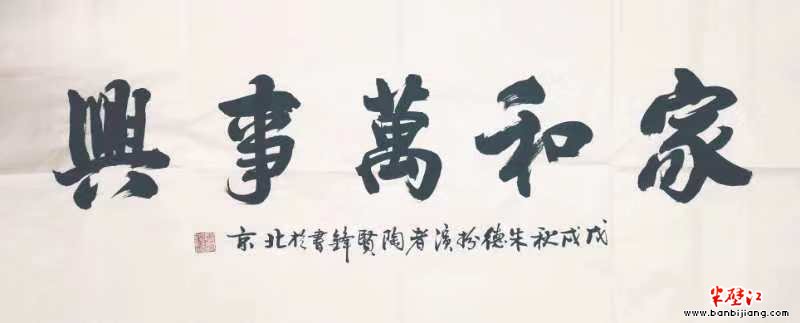 家和萬事興
戊戌秋朱德扮演者陶賢鋒書於北京
半壁江
www.banbijiang.com